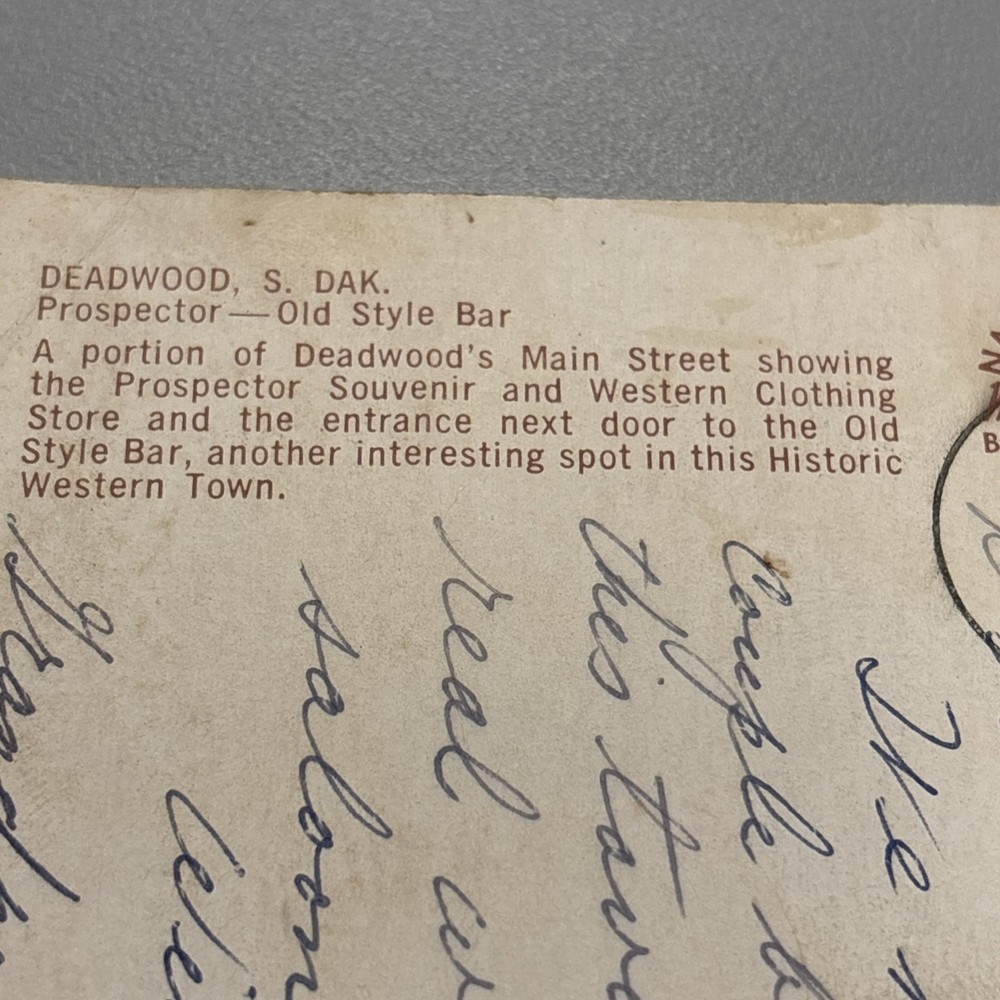 DEADWOOD, S. DAK.
Prospector — Old Style Bar
A portion of Deadwood's Main Street showing
the Prospector Souvenir and Western Clothing
Store and the entrance next door to the Old
Style Bar, another interesting spot in this Historic
Western Town.
We
Couple
this
real
saloon